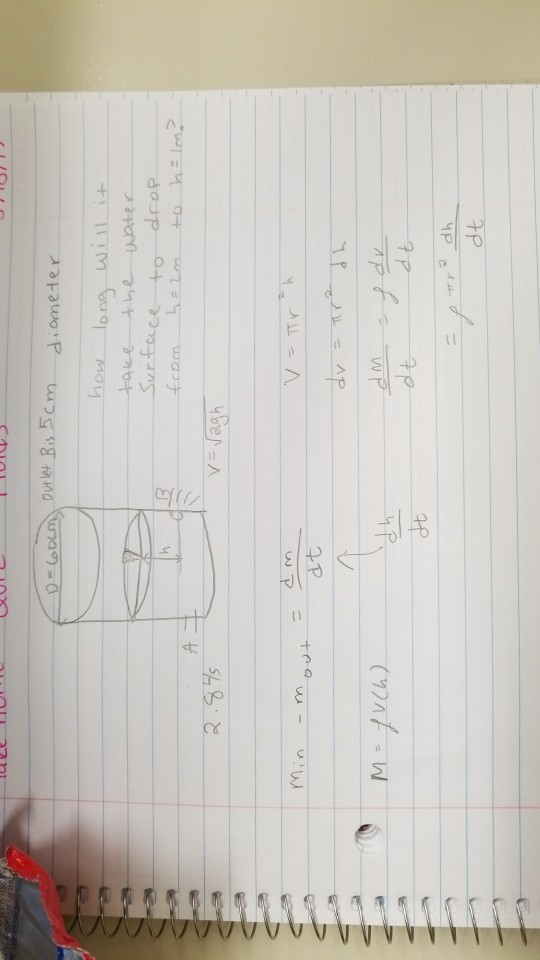 Take Home Quiz
D=60cm, Outlet B is 5cm diameter
how long will it
take the water
Surface to drop
from h=2m to h=1m?
A
h
B
2.84/s
V=√2gh
min - mout = dm/dt
V = πr²h
dv = πr² dh
M = ρV(h)
dh/dt
dM/dt = ρ dv/dt
= ρ πr² dh/dt